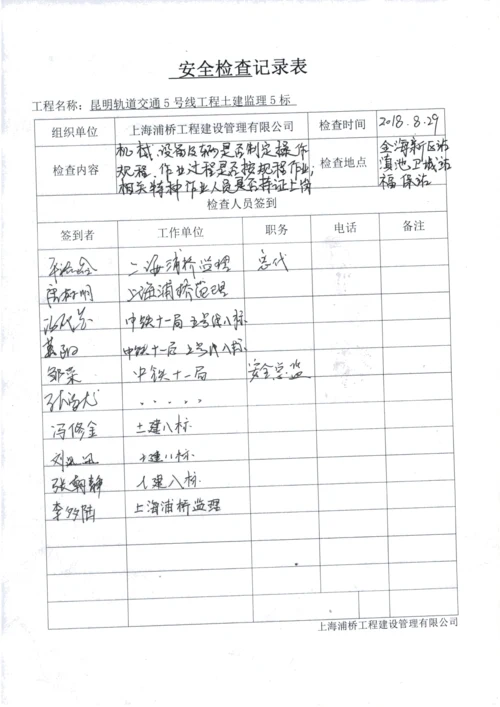 安全检查记录表
工程名称：昆明轨道交通5号线工程土建监理5标
组织单位 上海浦桥工程建设管理有限公司 检查时间 2018.8.29
检查内容 机械、设备及车辆是否制定操作
规程，作业过程是否按规程作业；
相关特种作业人员是否持证上岗
检查地点 会海新区站
滇池卫城站
福保站
检查人员签到
签到者 工作单位 职务 电话 备注
上海浦桥监理 总代
上海浦桥监理
中铁十一局五号线八标
中铁十一局五号线八标
邹荣 中铁十一局 安全总监
·····
冯修金 土建八标
土建八标
张朝静 土建八标
上海浦桥监理
上海浦桥工程建设管理有限公司